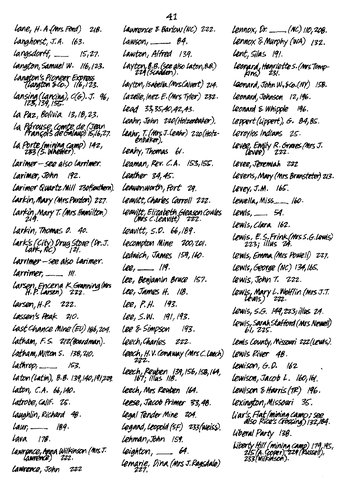 41
Lane, H. A. (Mrs. Ford) 218.
Langhorst, J. A. 163.
Langsdorff, 15, 27.
Langton, Samuel W. 116, 123.
Langton's Pioneer Express
(Langton & Co.) 116, 123.
Lansing (Lancina), C(G). J. 96,
La Paz, Bolivia 12, 18, 23.
La Pérouse, Comte de (Jean
François de Galaup) 15, 16, 27.
La Porte (mining camp) 142,
Larimer — see also Larimer.
Larimer, John 192.
Larimer Quartz Mill
Larkin, Mary (Mrs. Purdon) 227.
Larkin, Mary T. (Mrs. Hamilton)
219.
Larkin, Thomas O. 40.
Lark's (City) Drug Store (Dr. J.
Larrimer — see also Larimer.
Larrimer, 111.
Larsen, H.P. 222.
Lassen's Peak 210.
Last Chance Mine (El) 166, 204.
Latham, F.S. 212 (Boardman).
Latham, Milton S. 138, 210.
Lathrop, 153.
Laton (Latin), B.B. 139, 140, 191, 209.
Laton, C.A. 66, 140.
Latrobe, Calif. 25.
Laughlin, Richard 48.
Laur, 189.
Lava 178.
Lawrence, Anna Wilkinson (Mrs. J.
Lawrence) 222.
Lawrence, John 222
Lawrence & Bazlow (NC) 222.
Lawson, 84.
Lawton, Alfred 139.
Layton, B.B. (see also Laton, B.B.)
Layton, Isabella (Mrs. Calvert) 214.
Lazelle, Hatt. E. (Mrs. Tyler) 232.
Lead 33, 35, 40, 42, 43.
Leahr, John 220 (Holzenbaker).
Leahr, T. (Mrs. J. Leahr) 220 (Holz-
enbaker).
Leahy, Thomas 61.
Leaman, Rev. C.A. 153, 155.
Leather 34, 45.
Leavenworth, Fort 29.
Leavitt, Charles Carroll 222.
Leavitt, Elizabeth Gleason Cowles
(Mrs. C. Leavitt) 222.
Leavitt, S.D. 66, 189.
Lecompton Mine 200, 201.
Ledwich, James 159, 160.
Lee, 119.
Lee, Benjamin Bruce 157.
Lee, James H. 118.
Lee, P.H. 193.
Lee, S.W. 191, 193.
Lee & Simpson 193.
Leech, Charles 222.
Leech, H.V. Conaway (Mrs. C. Leech)
222.
Leech, Reuben 139, 156, 158, 164,
167; illus. 118.
Leech, Mrs. Reuben 164.
Leese, Jacob Primer 33, 48.
Legal Tender Mine 204.
Legand, Leopold (SF) 233 (Weiss).
Lehman, John 159.
Leighton, 64.
Lemarie, Dina (Mrs. J. Ragsdale)
227.
Lennox, Dr. (NC) 110, 208.
Lennox & Murphy (WA) 132.
Lent, Silas 191.
Leonard, Henriette S. (Mrs. Tomp-
kins) 231.
Leonard, John W., Co. (NY) 158.
Leonard, Johnson 12, 196.
Leonard & Whipple 96.
Leppert (Lippert), G. 84, 85.
Leroyles Indians 25.
Levee, Emily R. Gaines (Mrs. J.
Levee) 222.
Levee, Jeremiah 222
Levens, Mary (Mrs. Brumsteter) 213.
Levey, J.M. 165.
Lewella, Miss 160.
Lewis, 54.
Lewis, Clara 162.
Lewis, E.S. Frink (Mrs. S.G. Lewis)
223; illus. 24.
Lewis, Emma (Mrs. Powell) 227.
Lewis, George (NC) 134, 165.
Lewis, John T. 222.
Lewis, Mary L. Wolflin (Mrs. J.T.
Lewis) 222.
Lewis, S.G. 144, 223; illus. 24.
Lewis, Sarah Stafford (Mrs. Newell)
61, 225.
Lewis County, Missouri 222 (Lewis).
Lewis River 48.
Lewison, G.D. 162
Lewison, Jacob L. 160, 161.
Lewison & Harris (SF) 196.
Lexington, Missouri 38.
Liar's Flat (mining camp; see
also Rice's Crossing) 132, 184.
Liberal Party 138.
Liberty Hill (mining camp) 179, 195,
233 (Wilkinson).